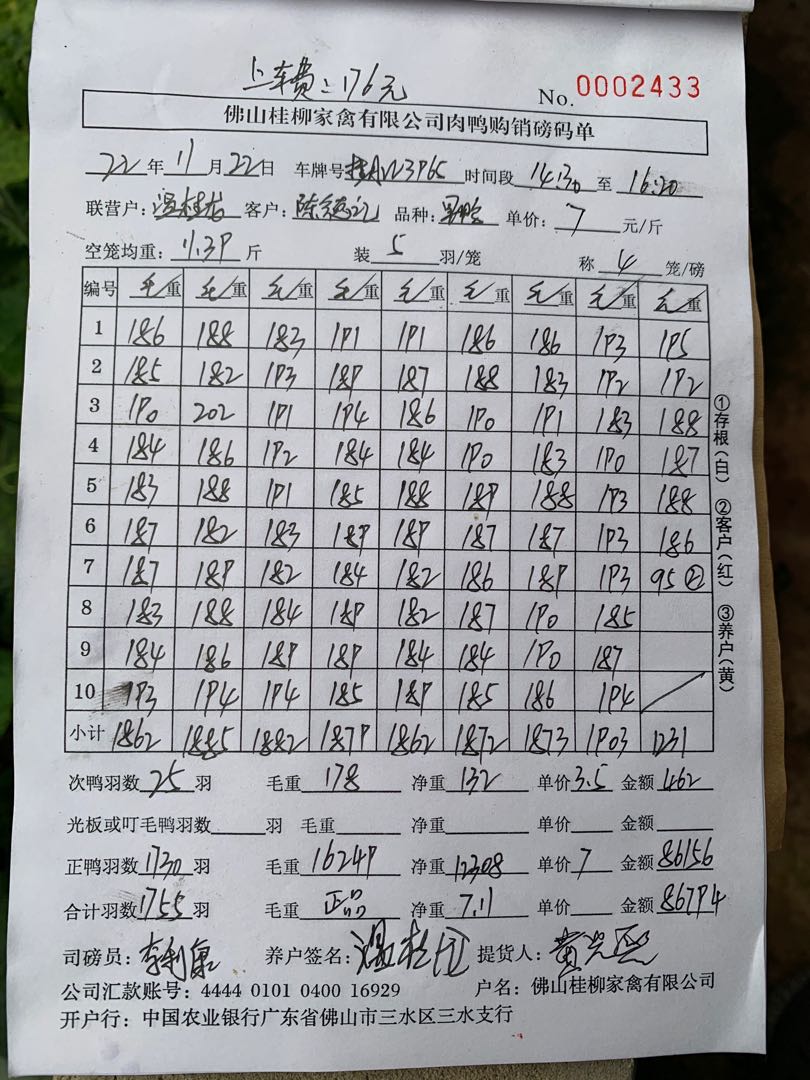 上车费：176元
No. 0002433
佛山桂柳家禽有限公司肉鸭购销磅码单
22年11月22日 车牌号桂AW3965 时间段 14:30 至 16:20
联营户： 客户：陈 品种： 单价：7 元/斤
空笼均重：11.39 斤 装 5 羽/笼 称 4 笼/磅
编号 毛重 毛重 毛重 毛重 毛重 毛重 毛重 毛重 毛重
1 186 188 183 191 191 186 186 193 195
2 185 182 193 189 187 188 183 192 192
3 190 202 191 194 186 190 191 183 188
4 184 186 192 184 184 190 183 190 187
5 183 188 191 185 188 189 188 193 188
6 187 182 183 189 189 187 187 193 186
7 187 189 182 184 182 186 189 193 95②
8 183 188 184 189 182 187 190 185
9 184 186 189 189 184 184 190 187
10 193 194 194 185 189 185 186 194
小计 1862 1885 1882 1879 1862 1872 1873 1903 1231
次鸭羽数 25 羽 毛重 178 净重 132 单价 3.5 金额 462
光板或叮毛鸭羽数 羽 毛重 净重 单价 金额
正鸭羽数 1730 羽 毛重 16249 净重 12308 单价 7 金额 86156
合计羽数 1755 羽 毛重 正品 净重 7.11 单价 金额 86794
司磅员：李利 养户签名：温桂 提货人：黄
公司汇款账号：4444 0101 0400 16929 户名：佛山桂柳家禽有限公司
开户行：中国农业银行广东省佛山市三水区三水支行
①存根（白） ②客户（红） ③养户（黄）